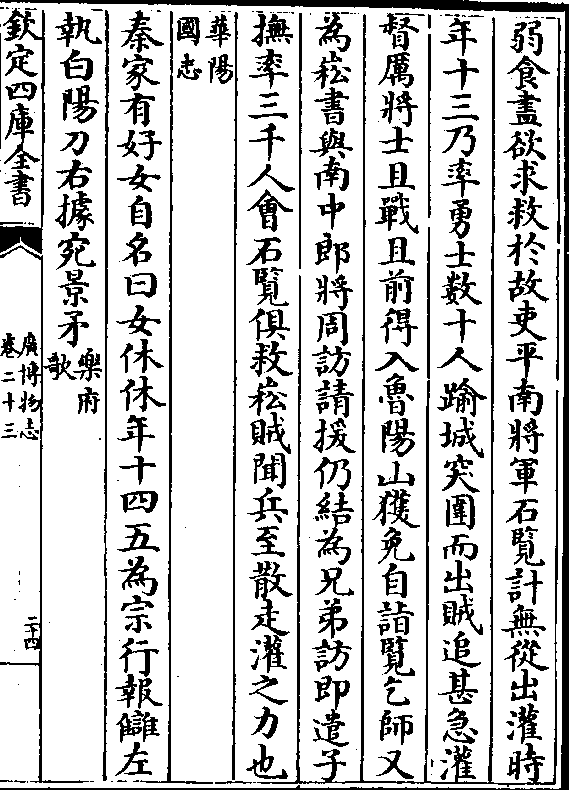 弱食盡欲求救於故吏平南將軍石覧計無從出灌時
年十三乃率勇士數十人踰城突圍而出賊追甚急灌
督厲將士且戰且前得入魯陽山獲免自詣覧乞師又
為崧書與南中郎將周訪請援仍結為兄弟訪即遣子
撫率三千人會石覧俱救崧賊聞兵至散走灌之力也
華陽
國志
秦家有好女自名曰女休休年十四五為宗行報讎左
執白陽刀右據宛景矛
樂府
歌
欽定四庫全書
廣博物志
卷二十三
二十四